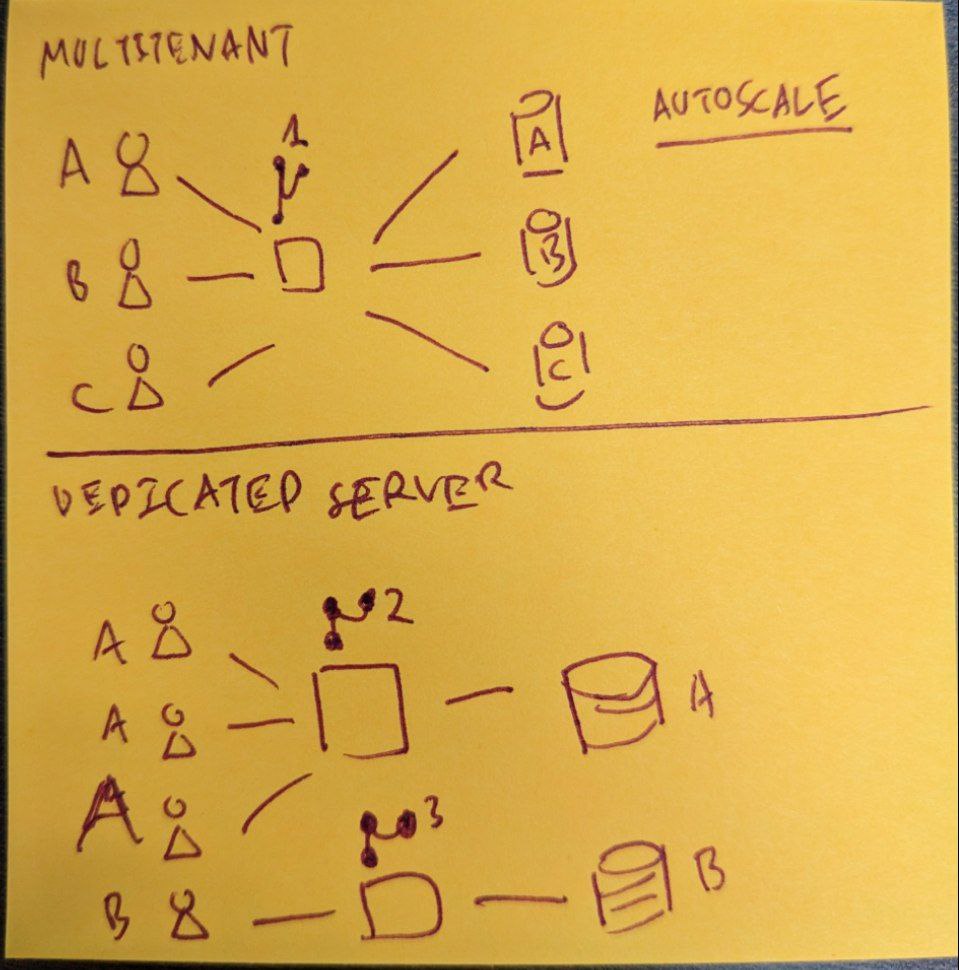 MULTITENANT
AUTOSCALE
A
1
A
B
B
C
C
DEDICATED SERVER
2
A
A
A
A
3
B
B